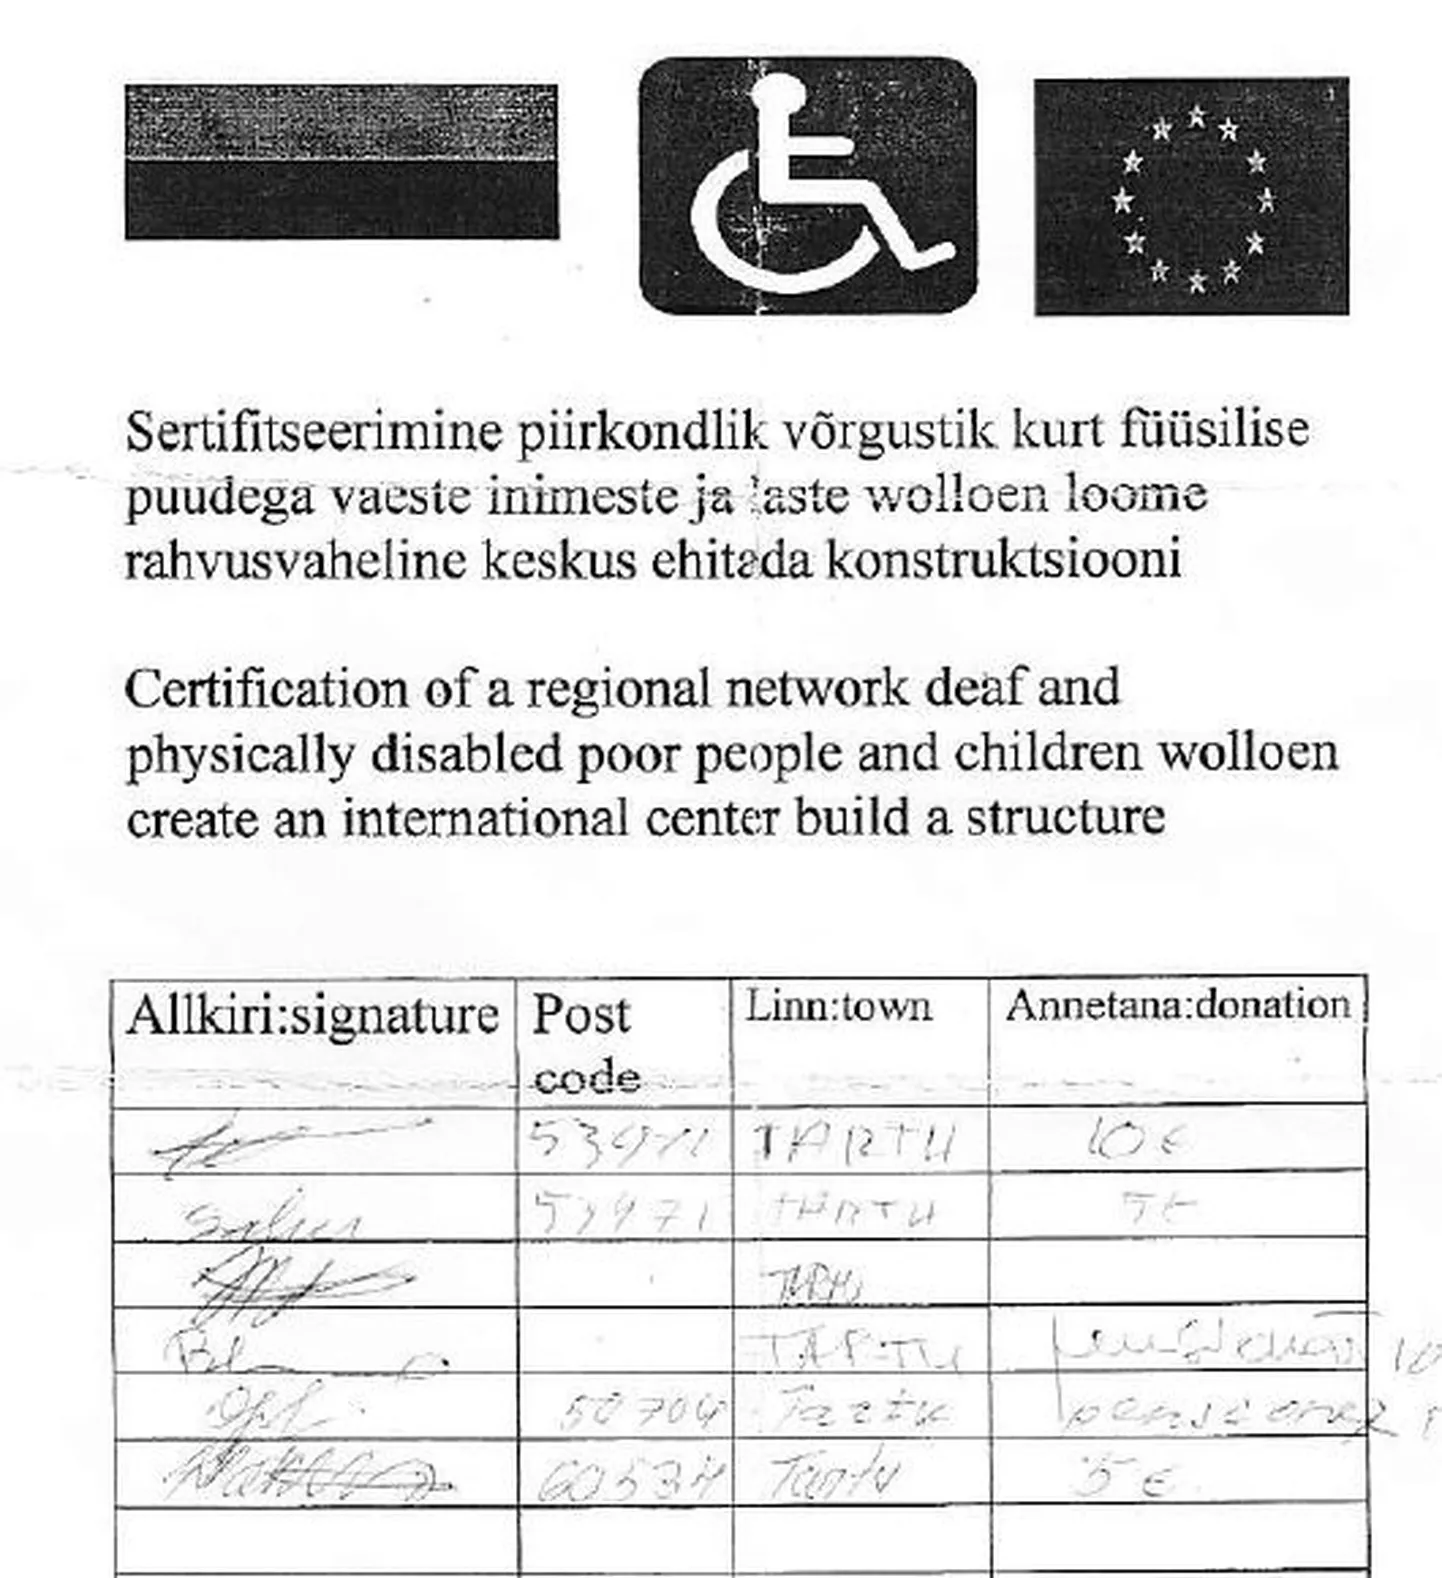 Sertifitseerimine piirkondlik võrgustik kurt füüsilise
puudega vaeste inimeste ja laste wolloen loome
rahvusvaheline keskus ehitada konstruktsiooni
Certification of a regional network deaf and
physically disabled poor people and children wolloen
create an international center build a structure
Allkiri:signature Post code Linn:town Annetana:donation
TARTU 10 €
TARTU 5 €
TARTU
TARTU
50704 Tartu
60534 Tartu 5 €